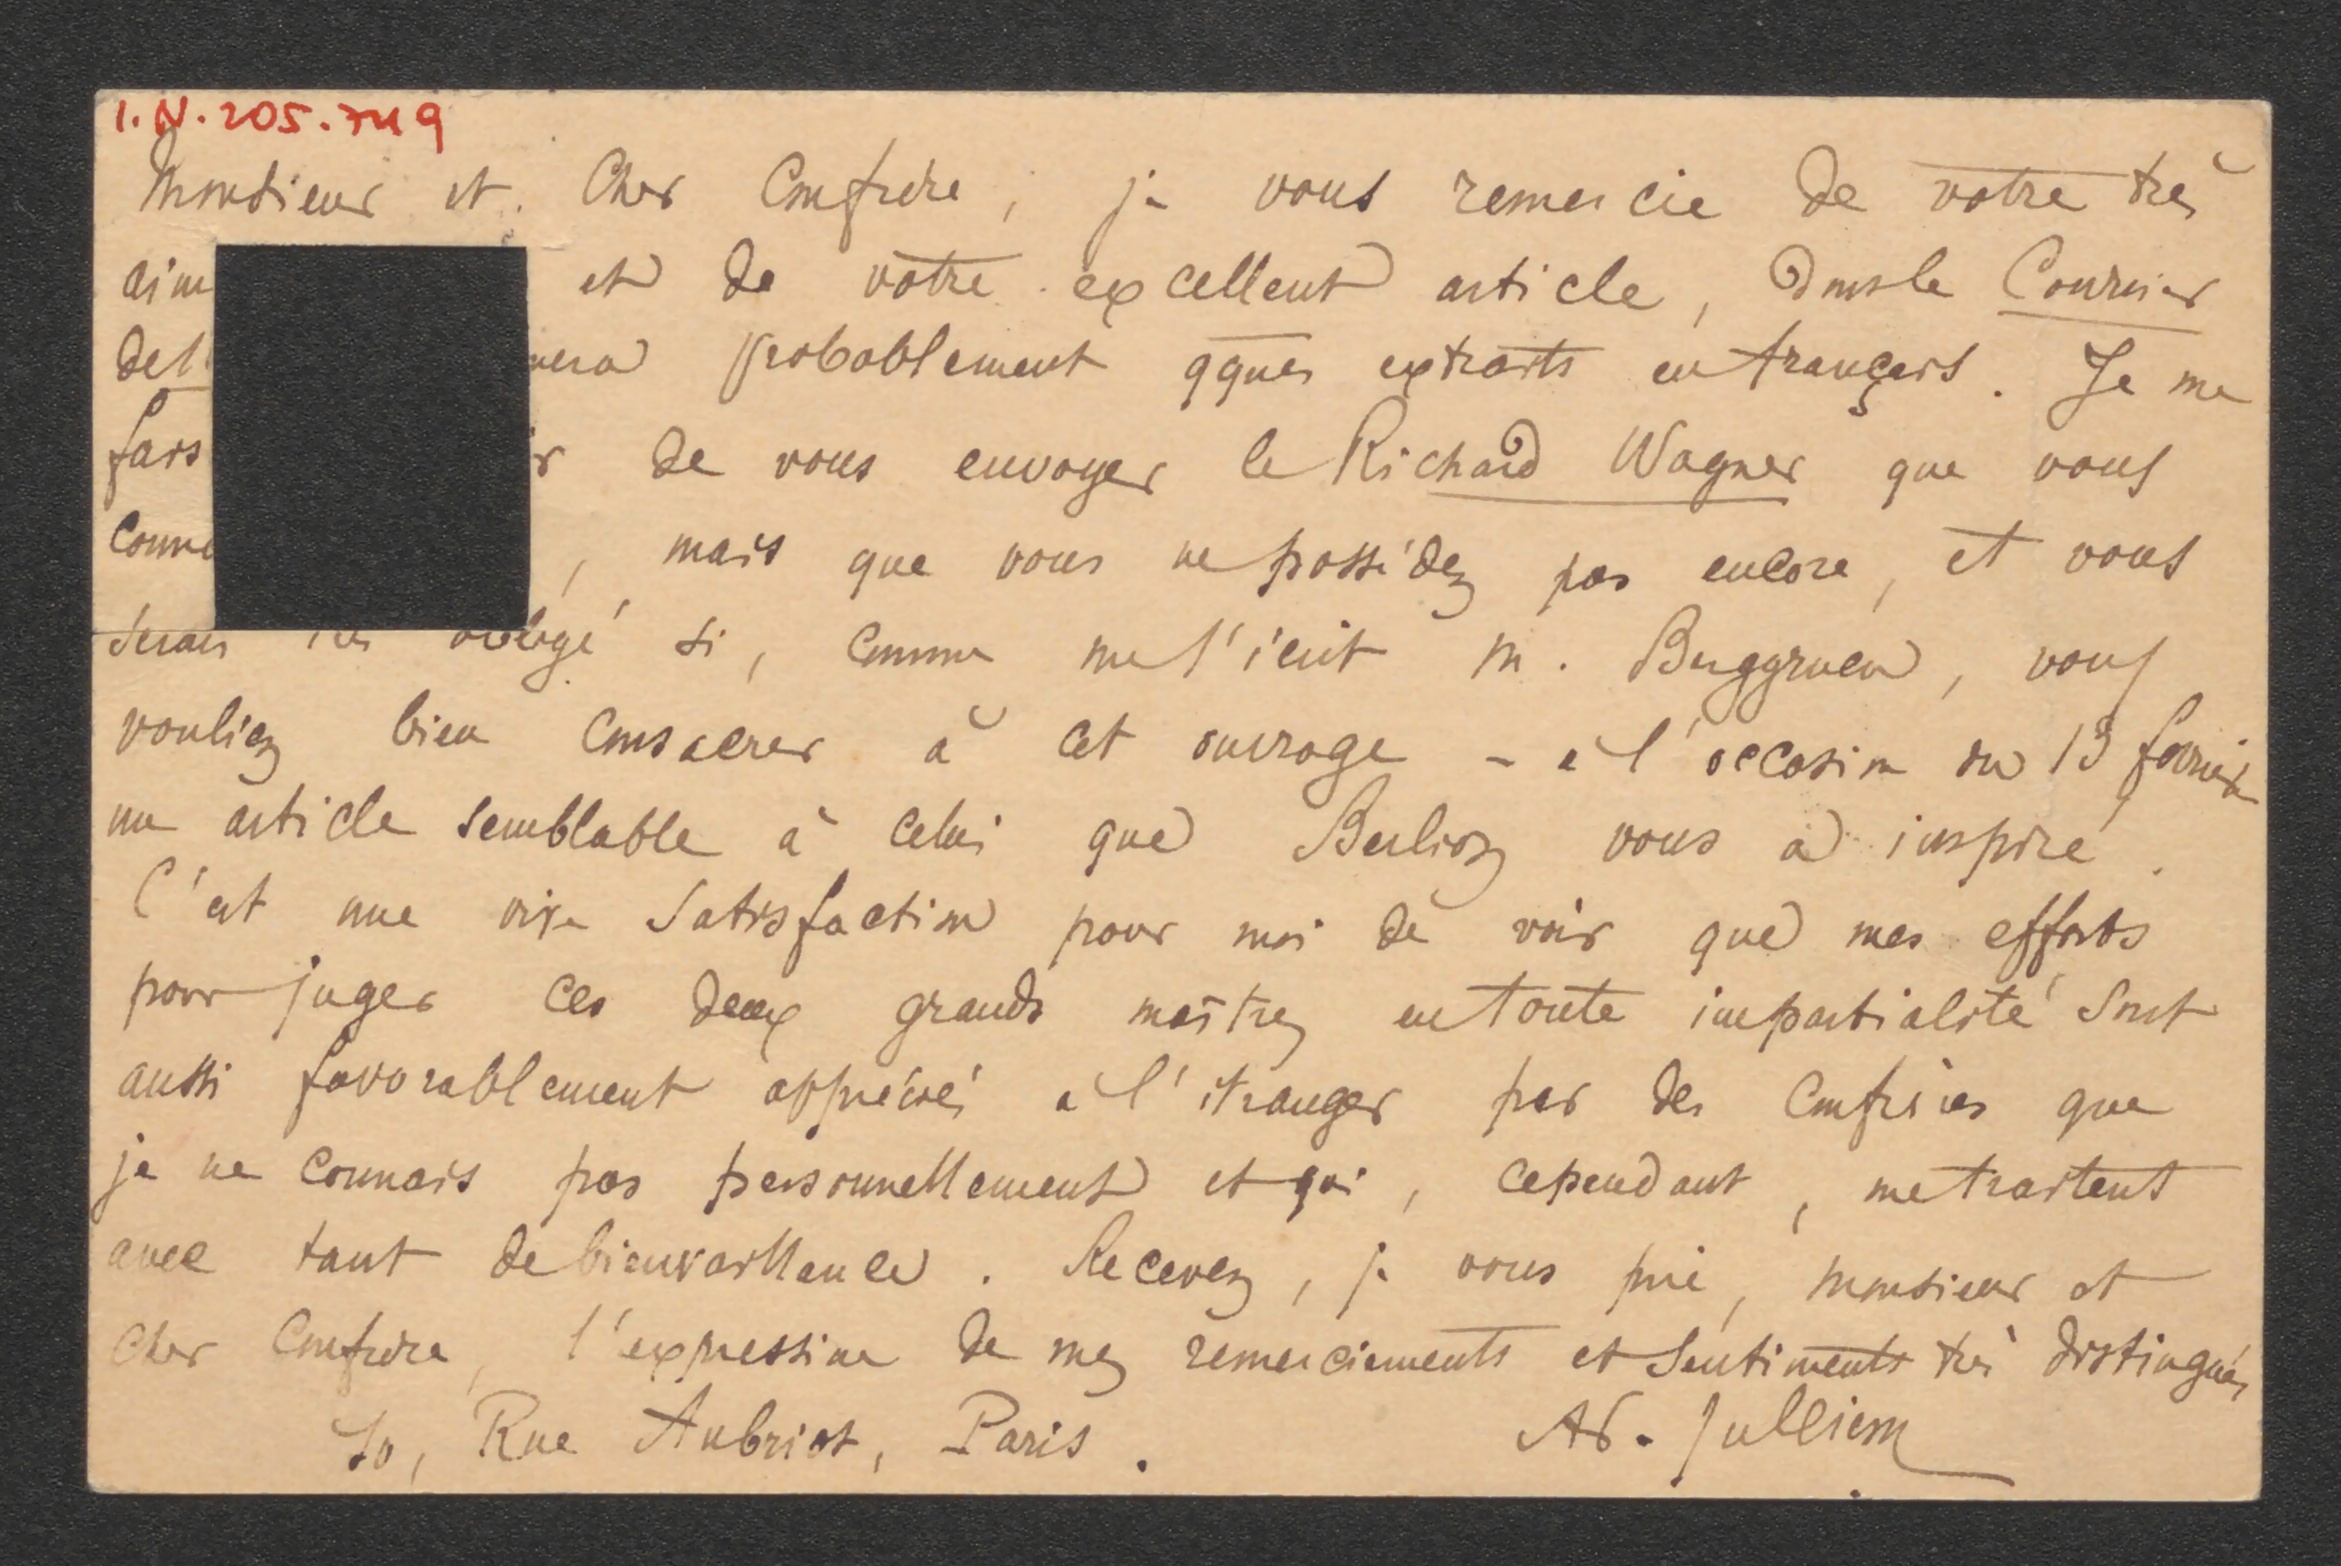 I.N. 205.749
Monsieur et Cher Confrère, je vous remercie de votre très
et de votre excellent article, dans le Courrier
probablement qques extraits en français. Je me
fais de vous envoyer le Richard Wagner que vous
, mais que vous ne possédez pas encore, et vous
serais très obligé si, comme me l'écrit M. Berggruen, vous
vouliez bien consacrer à cet ouvrage – à l'occasion du 13 février
un article semblable à celui que Berlioz vous a inspiré.
C'est une vive satisfaction pour moi de voir que mes efforts
pour juger ces deux grands maîtres en toute impartialité sont
aussi favorablement appréciés à l'étranger par des confrères que
je ne connais pas personnellement et qui, cependant, me traitent
avec tant de bienveillance. Recevez, je vous prie, Monsieur et
Cher Confrère, l'expression de mes remerciements et sentiments très distingués
Rue Aubriot, Paris. Ad. Jullien